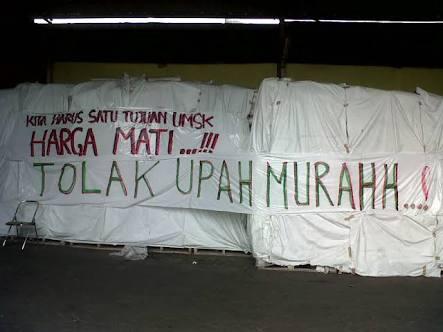 KITA HARUS SATU TUJUAN UMSK
HARGA MATI...!!!
TOLAK UPAH MURAHH..!